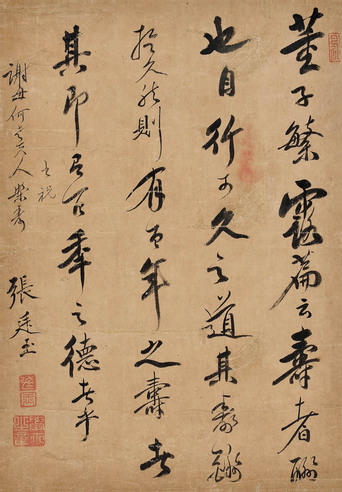 董子繁露篇云壽者酬
也自行可久之道其壽酬
於久然則有百年之壽者
其即有百季之德者乎
謝母何夫人榮壽
祝
張廷玉